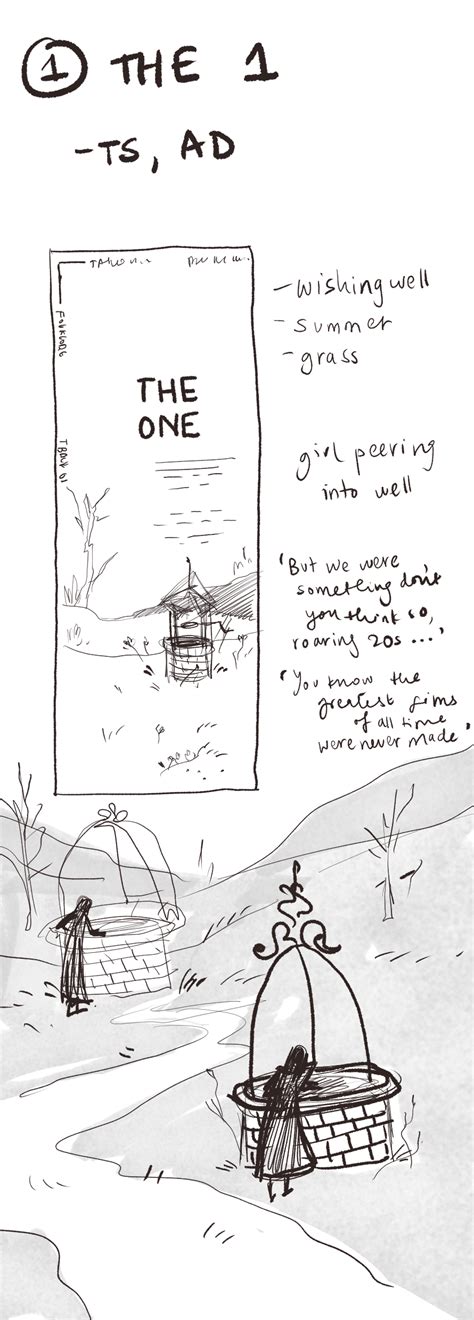 ① THE 1
-TS, AD
FOLKLORE
THE
ONE
- wishing well
- summer
- grass
girl peering
into well
'But we were
something don't
you think so,
roaring 20s ...'
'You know the
greatest fims
of all time
were never made'